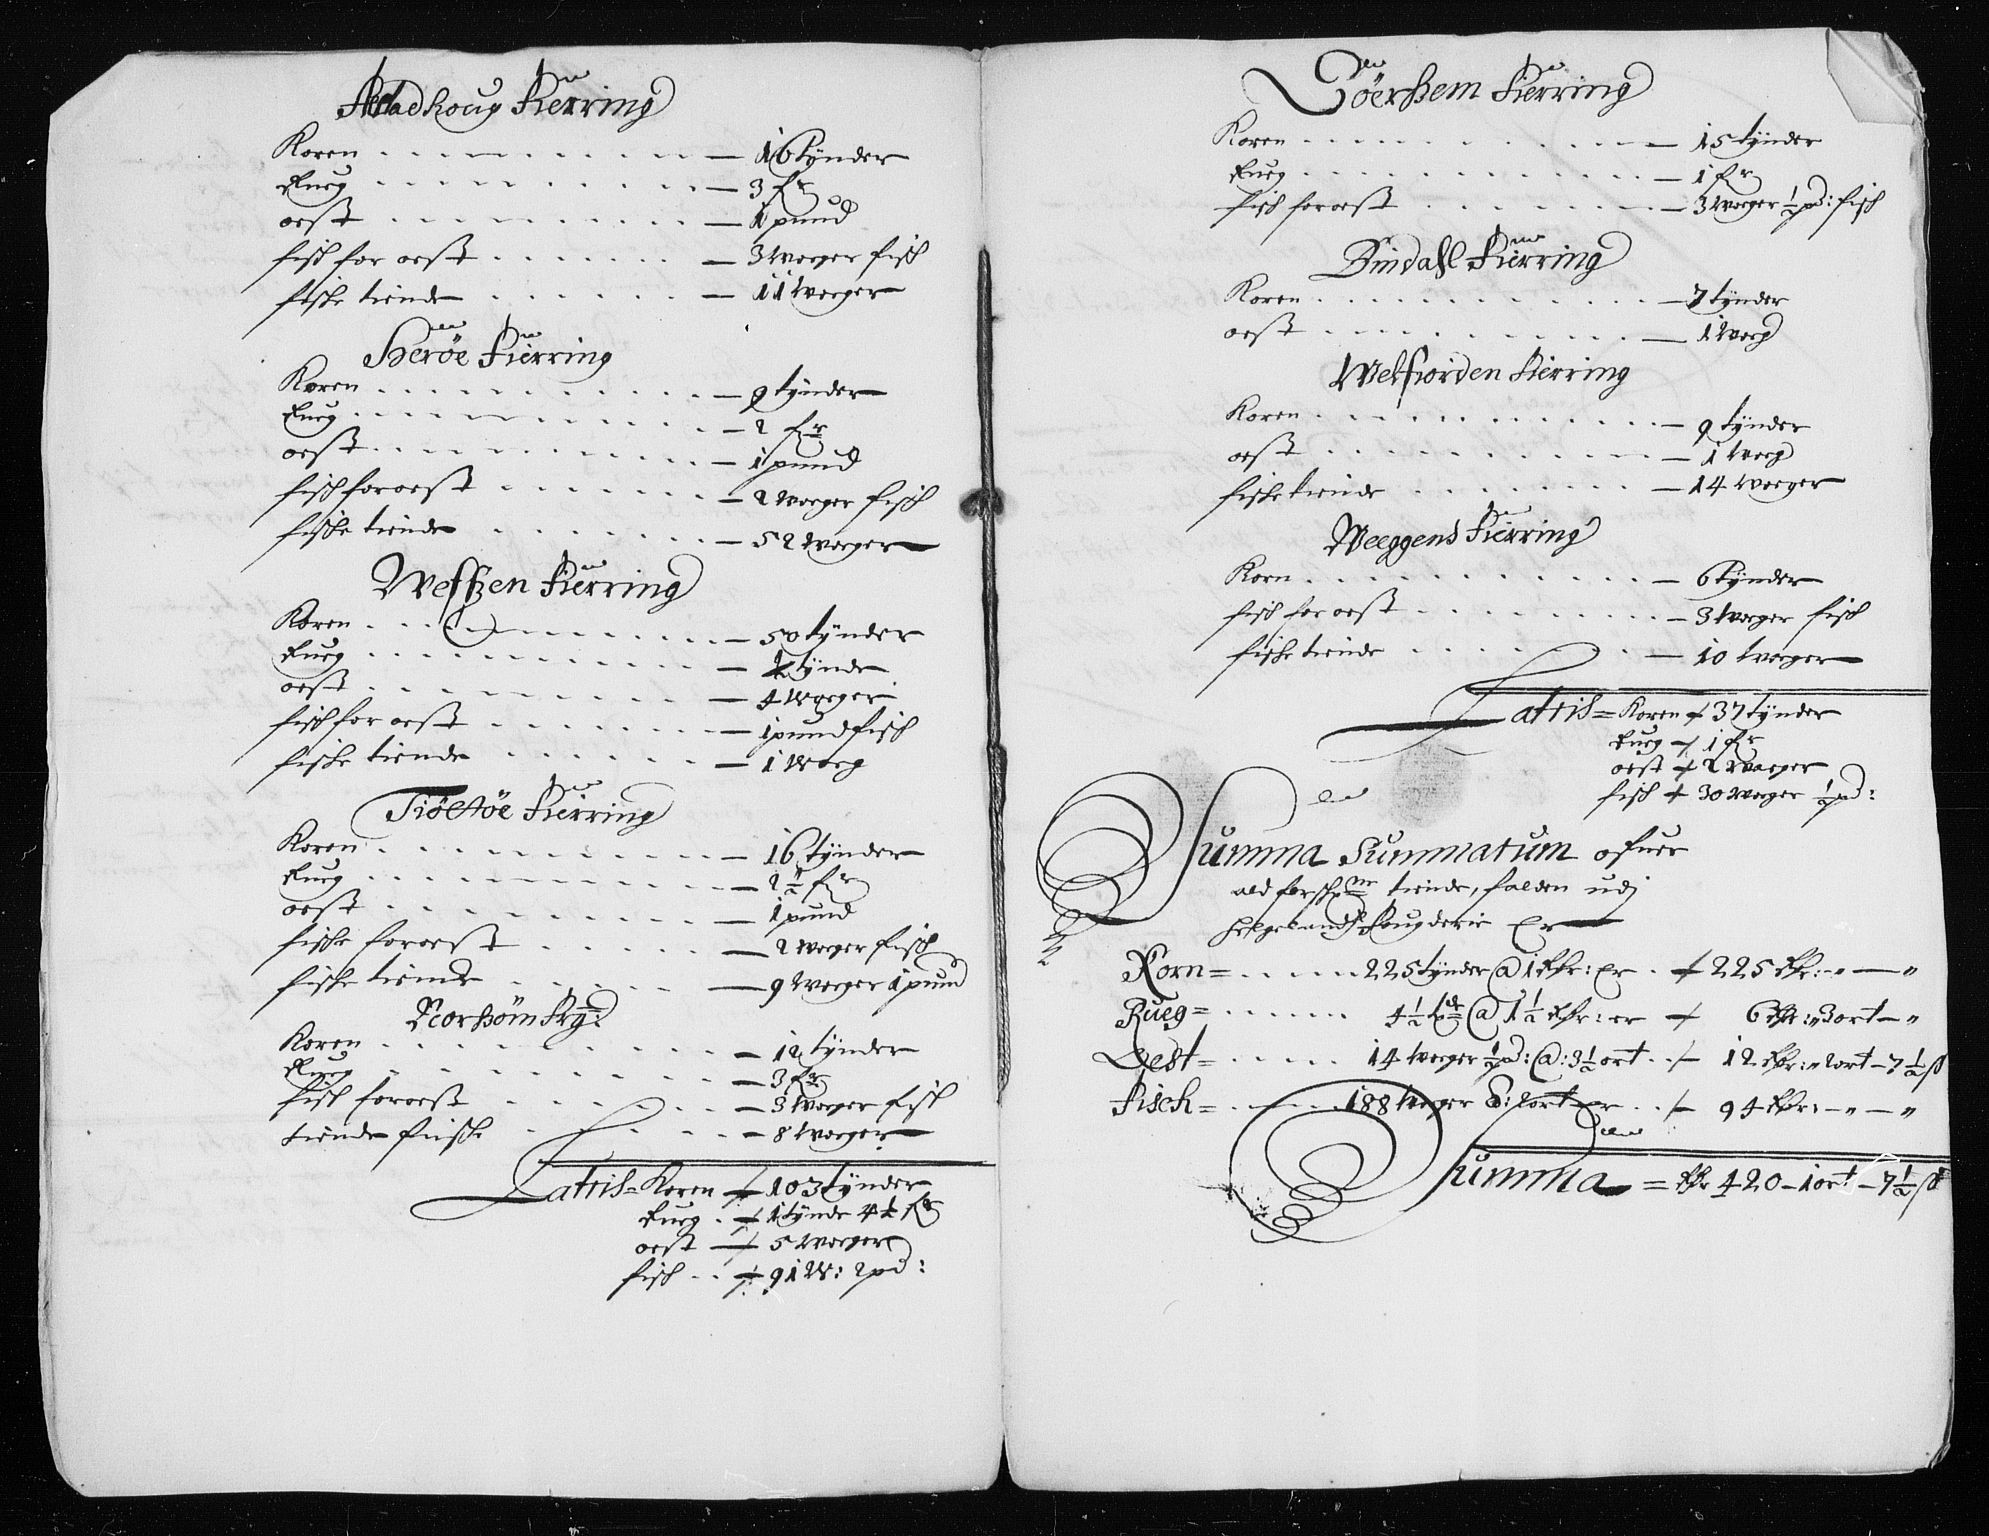 Aladhoug Fierring
Koren - - - - 16 tynder
Rueg - - - - 3 fr
oest - - - - 1 pund
fisch for oest - - - - 3 woeger fisch
fische tiende - - - - 11 woeger
Heröe Fierring
Koren - - - - 9 tynder
Rueg - - - - 2 fr
oest - - - - 1 pund
fisch for oest - - - - 2 woeger fisch
fische tiende - - - - 52 woeger
Wefszen Fierring
Koren - - - - 50 tynder
Rueg - - - - 1 tynde
oest - - - - 4 woeger
fisch for oest - - - - 1 pund fisch
fische tiende - - - - 1 Woeg
Tiöltöe Fierring
Koren - - - - 16 tynder
Rueg - - - - 1½ fr
oest - - - - 1 pund
fische for oest - - - - 2 woeger fisch
fische tiende - - - - 9 Woeger 1 pund
Norhöm frg:
Koren - - - - 12 tynder
Rueg - - - - 3 fr
fisch for oest - - - - 3 woeger fisch
tiende fische - - - - 8 woeger
Latris = Koren 103 tynder
Rueg 1 tynde 4½ fr
oest 5 woeger
fisch 91 W: 2 pd:
Söerhem Fierring
Koren - - - - 15 tynder
Rueg - - - - 1 fr
fisch for oest - - - - 3 woeger ½ pd: fisch
Bindahl Fierring
Koren - - - - 7 tynder
oest - - - - 1 woeg
Welfiorden Fierring
Koren - - - - 9 tynder
oest - - - - 1 woeg
fische tiende - - - - 14 woeger
Weeggens Fierring
Korn - - - - 6 tynder
fisch for oest - - - - 3 woeger fisch
fische tiende - - - - 10 woeger
Latris = Koren 37 tynder
Rueg 1 fr
oest 2 Woeger
fisch 30 woger ½ pd:
Summa Summatum ofuer
ald forschne tiende, falden udj
Helgelands fougderie Er
Korn = - - - 225 tynder @ 1 Rdr: er 225 Rdr: - " - "
Rueg = - - - 4½ td @ 1½ Rdr: er 6 Rdr: " 3 ort - "
Oest = - - - 14 woeger ½ pd: @: 3½ ort 12 Rdr: " 2 ort - 7½ ß
Fisch = - - - 188 Woger @: 2 ort er 94 Rdr: - " - "
Summa = Rdr 420 - 1 ort - 7½ ß